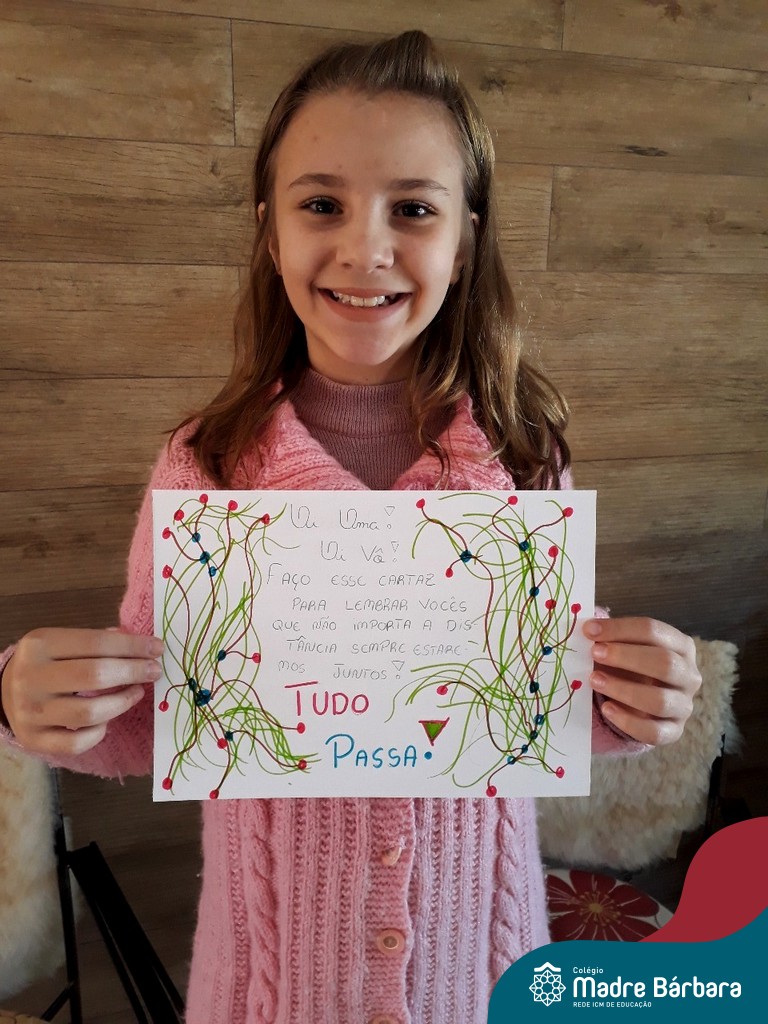 Oi Oma!
Oi Vô!
FAÇO ESSE CARTAZ
PARA LEMBRAR VOCÊS
QUE NÃO IMPORTA A DIS-
TÂNCIA SEMPRE ESTARE-
MOS JUNTOS!
TUDO
PASSA!
Colégio
Madre Bárbara
REDE ICM DE EDUCAÇÃO